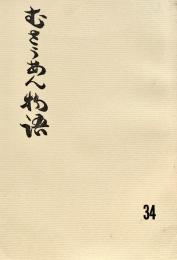 むさうあん物語
34